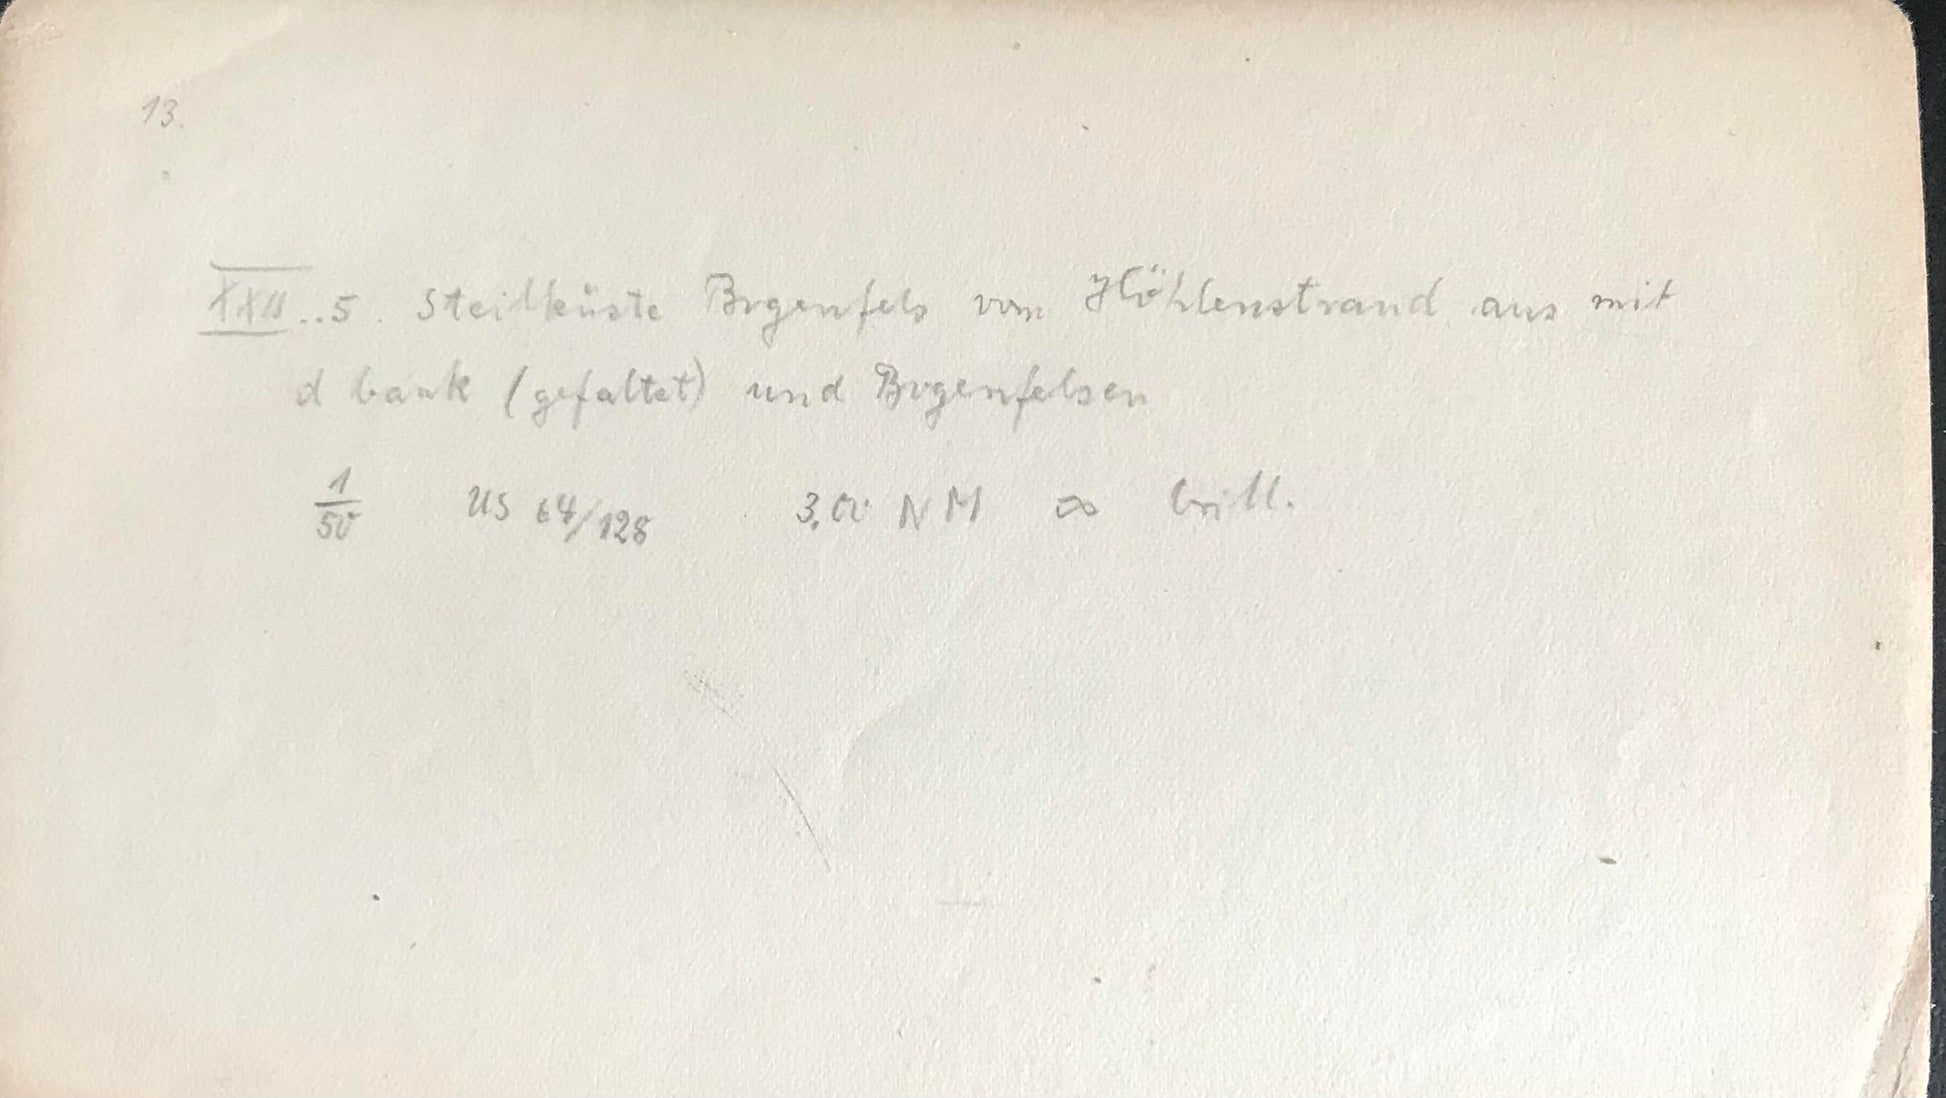 13.
XXII..5. Steilküste Bogenfels vom Höhlenstrand aus mit
d bank (gefaltet) und Bogenfelsen
1/50 US 64/128 3.00 NM ∞ brill.